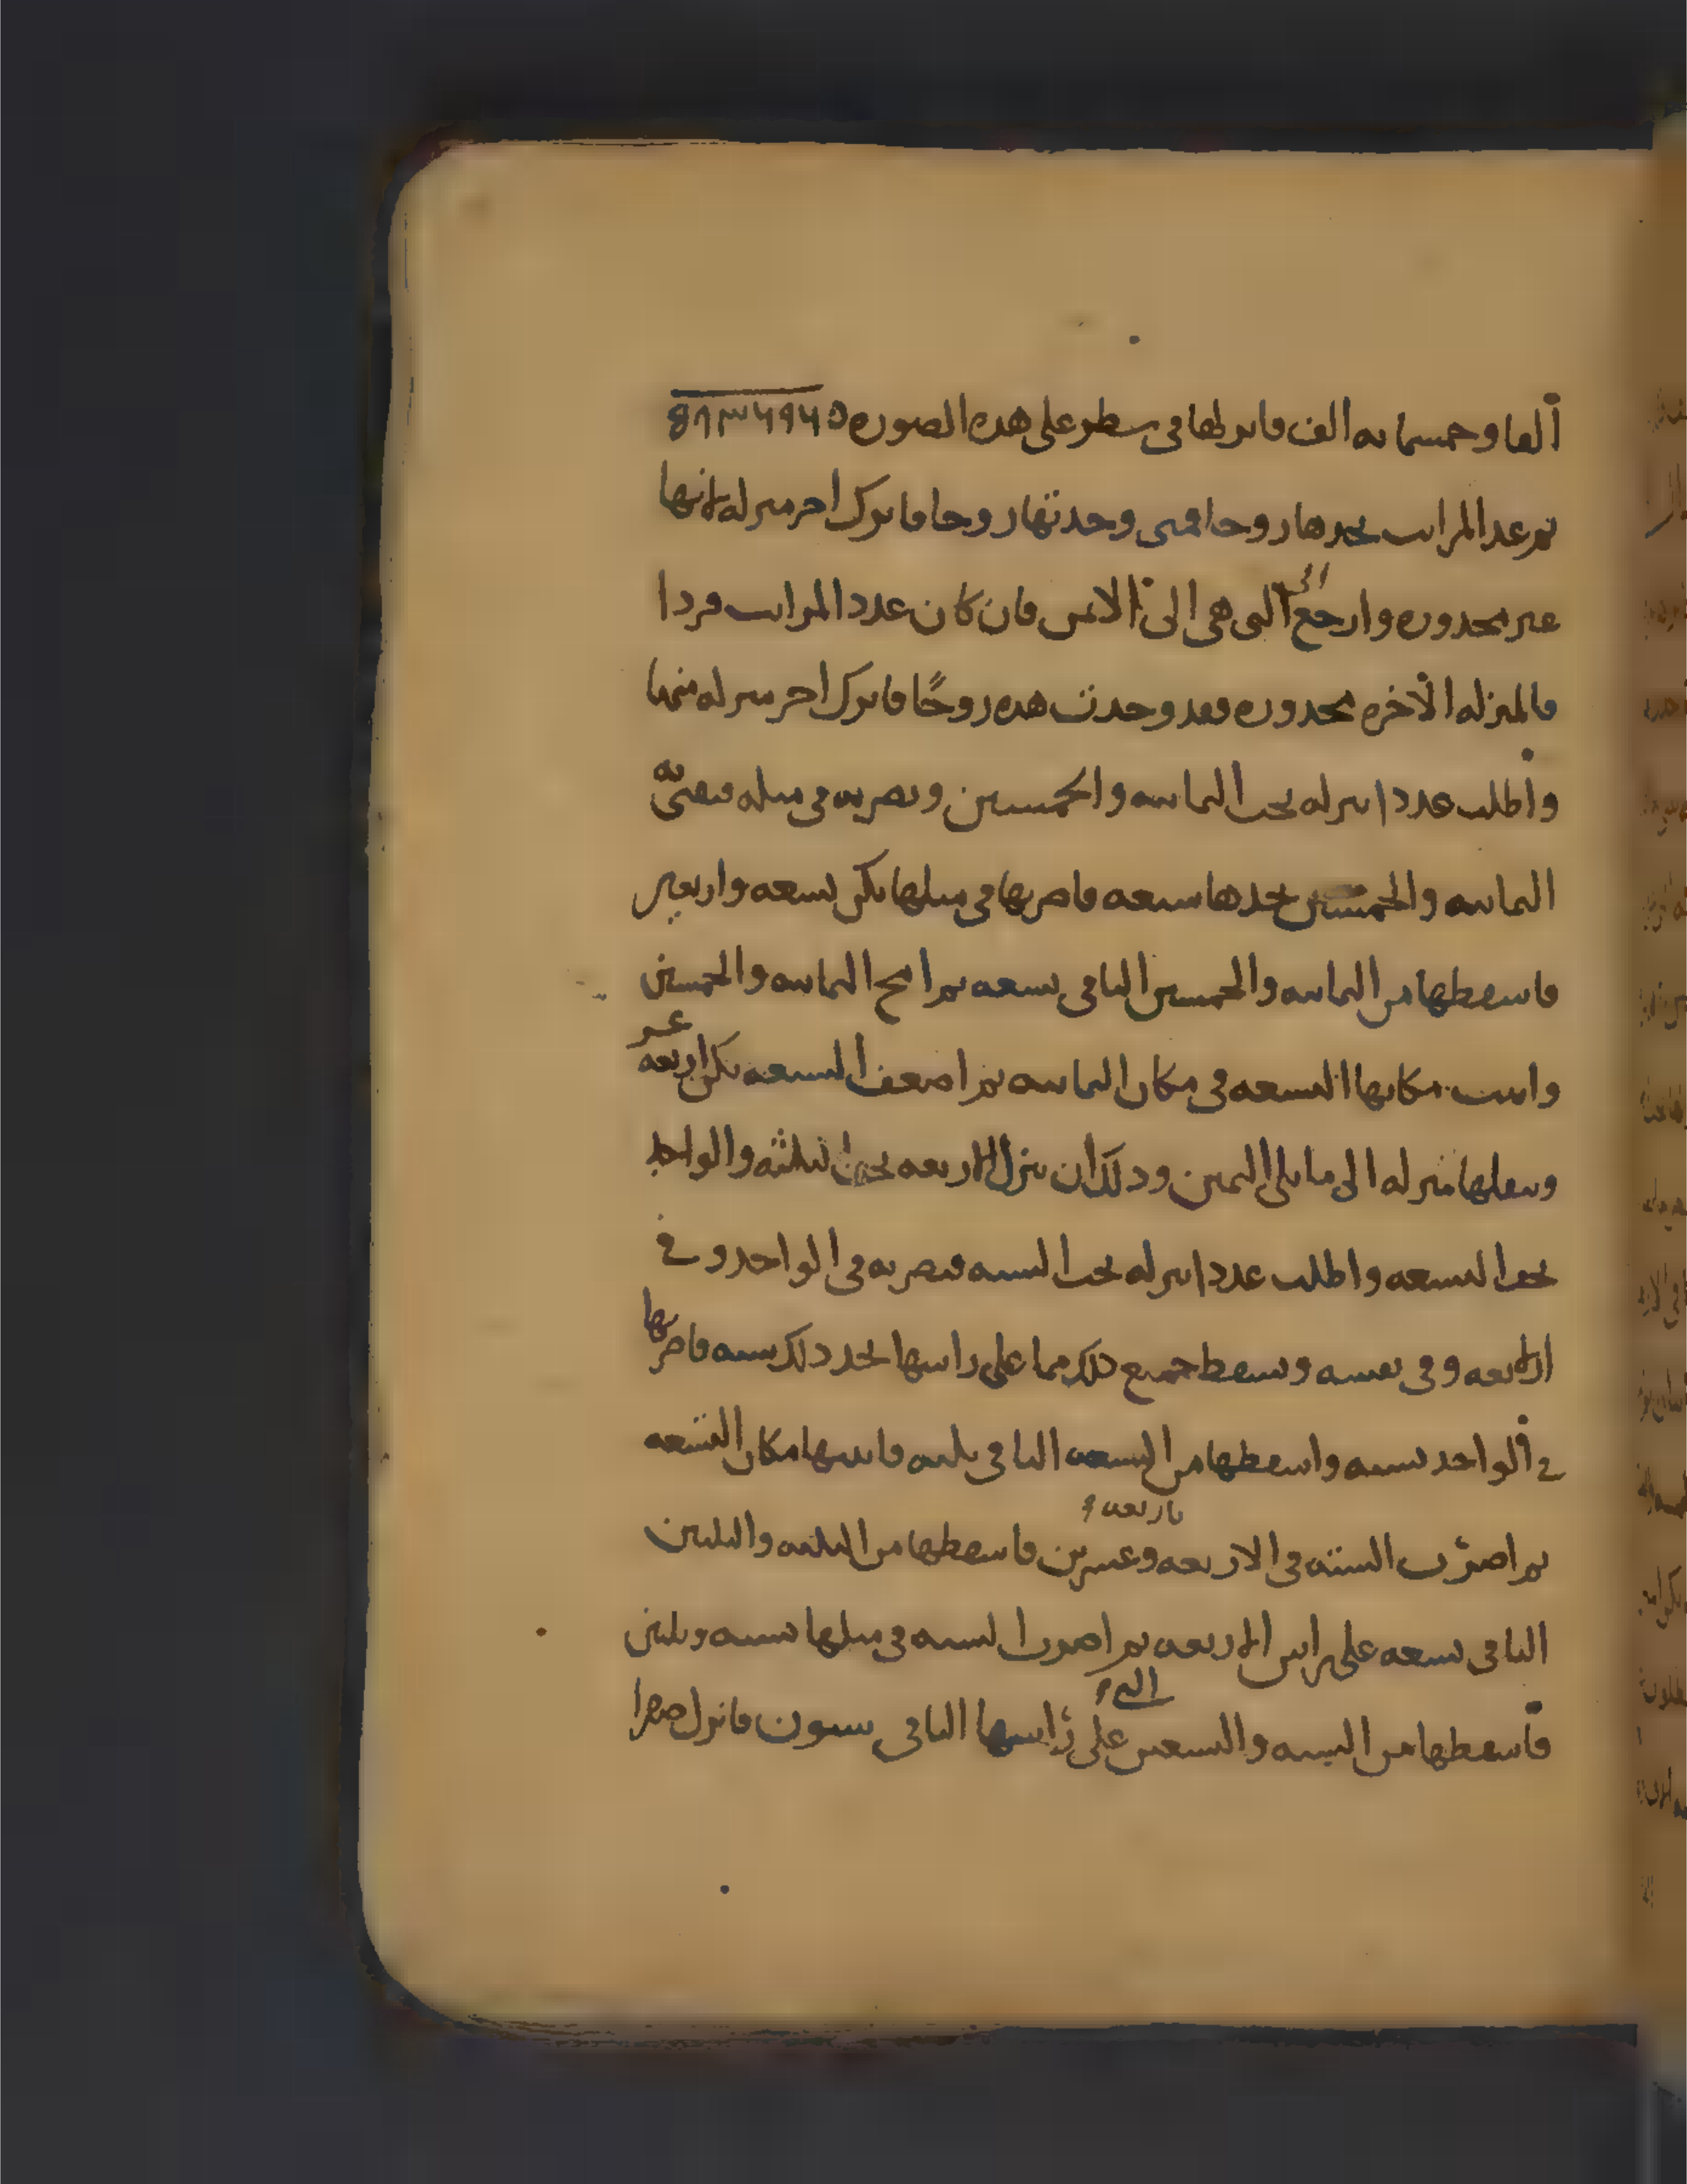 ألفا وخمسمايه الف فانزلها في سطر على هذه الصوره
ثم عد المراتب تجدها زوجا فمتى وجدتها زوجا فاترك اخر منزله لانها
غير مجذوره وارجع الى التي هي الى الايمن فان كان عدد المراتب فردا
فالمنزله الاخره مجذوره فقد وجدت هذه زوجًا فاترك اخر منزله منها
واطلب عددا تنزله تحت الثمانيه والخمسين وتضربه في مثله فيفنى به
الثمانيه والخمسين تجدها سبعه فاضربها في مثلها تكن تسعه واربعين
فاسقطها من الثمانيه والخمسين الباقي تسعه ثم امح الثمانيه والخمسين
واثبت مكانها التسعه في مكان الثمانيه ثم اضعف السبعه تكن اربعه عشر
وتنقلها منزله الى ما يلي اليمين وذلك ان تنزل الاربعه تحت الثلثه والواحد
تحت التسعه واطلب عددا تنزله تحت السته فتضربه في الواحد وفي
الاربعه وفي نفسه وتسقط جميع ذلك مما على راسها تجد ذلك سته فاضربها
في الواحد بسته واسقطها من التسعه الباقي ثلثه فاثبتها مكان التسعه
ثم اضرب السته في الاربعه باربعه وعشرين فاسقطها من الثلثه والثلثين
الباقي تسعه على راس الاربعه ثم اضرب السته في مثلها بسته وثلثين
فاسقطها من السته والتسعين التي على راسها الباقي ستون فانزل صفرا